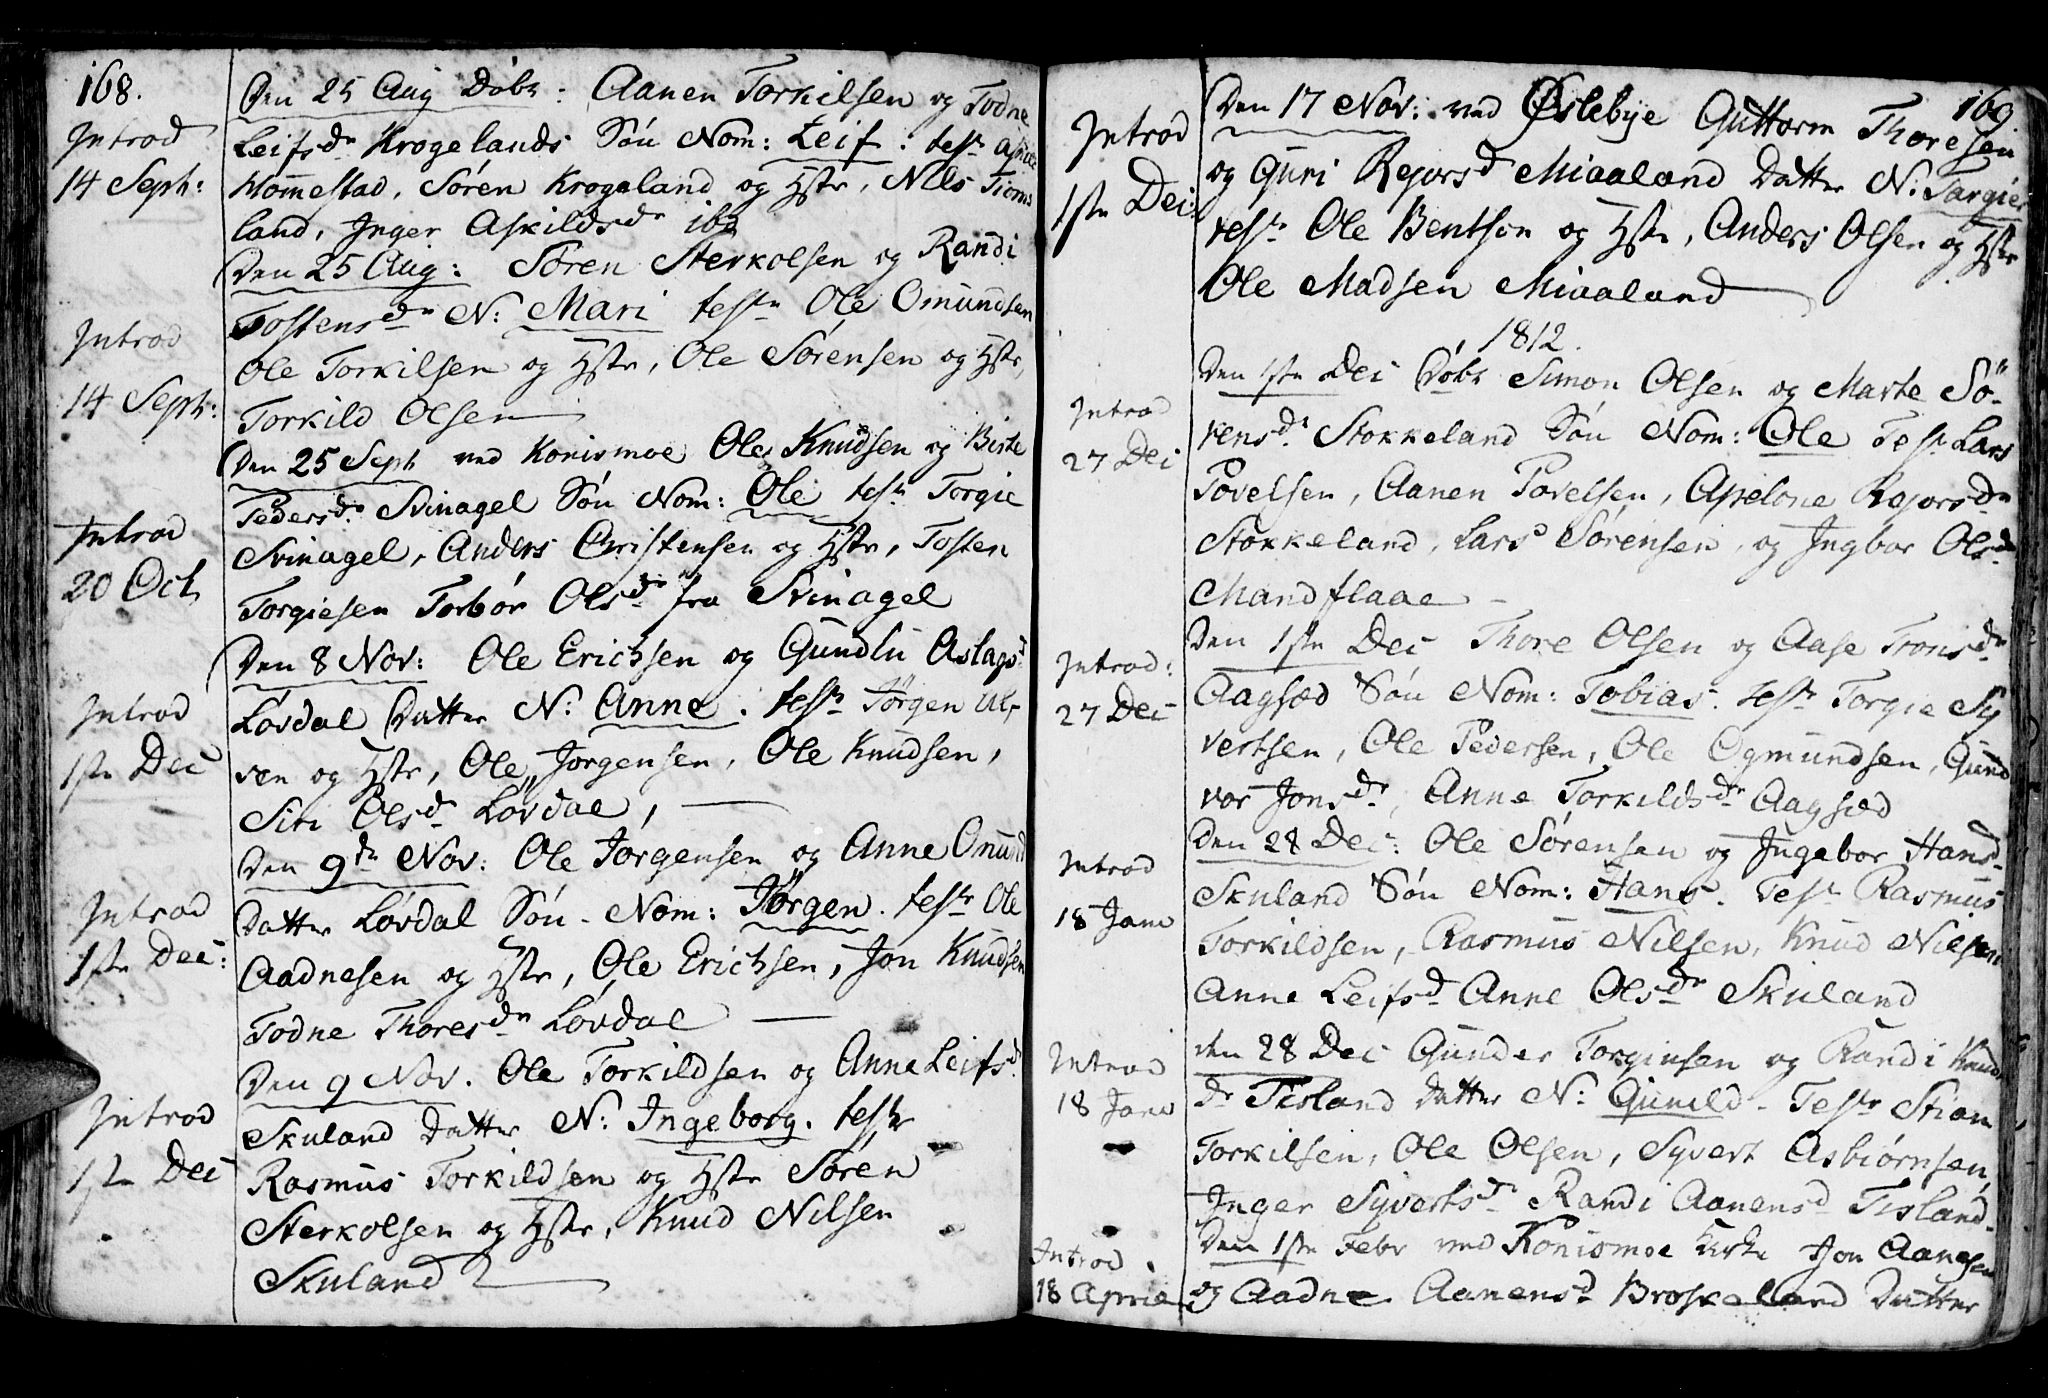 168.
Introd
14 Sept:
Den 25 Aug Døbt: Aanen Torkilsen og Todne
Leifsdr Krogelands Søn Nom: Leif. testr
Hommestad, Søren Krogeland og Hstr, Nils
land, Inger Askildsdr ibd
Introd
14 Sept:
Den 25 Aug: Søren Sterkolsen og Randi
Tostensdr N: Mari testr Ole Omundsen
Ole Torkilsen og Hstr, Ole Sørensen og Hstr,
Torkild Olsen
Introd
20 Oct
Den 25 Sept ved Konismoe Ole Knudsen og Birte
Pedersdr Svinagel Søn Nom: Ole testr Torgie
Svinagel, Anders Christensen og Hstr, Tosten
Torgiesen Torbor Olsdr fra Svinagel
Introd
1ste Dec
Den 8 Nov: Ole Erichsen og Gundlu Aslagsd
Lovdal Datter N: Anne. testr Jørgen
og Hstr, Ole Jorgensen, Ole Knudsen,
Siri Olsdr Lovdal,
Introd
1ste Dec:
Den 9de Nov: Ole Jorgensen og Anne Omund
Datter Lovdal Søn - Nom: Jørgen. testr Ole
Aadnesen og Hstr, Ole Erichsen, Jon Knudsen
Todne Thoresdr Lovdal
Introd
1ste Dec
Den 9 Nov. Ole Torkildsen og Anne Leifsd
Skuland Datter N: Ingeborg. testr
Rasmus Torkildsen og Hstr Søren
Sterkolsen og Hstr, Knud Nilsen
Skuland
169
Introd
1ste Dec:
Den 17 Nov: ved Øslebye Guttorm Thoresen
og Guri Rejorsd Miaaland Datter N: Targier
testr Ole Bentsen og Hstr, Anders Olsen og Hstr
Ole Madsen Miaaland
1812.
Introd
27 Dec
Den 1ste Dec Døbt Simon Olsen og Marte Sø-
rensdr Stokkeland Søn Nom: Ole Testr Lars
Povelsen, Aanen Povelsen, Apelone Rejorsdr
Stokkeland, Lars Sørensen, og Ingbor Olsdr
Mandflaae
Introd:
27 Dec
Den 1ste Dec Thore Olsen og Aase Tronsdr
Aagsæd Søn Nom: Tobias. testr Torgie Sy
vertsen, Ole Pedersen, Ole Ogmundsen, Gund
vor Jonsdr, Anne Torkildsdr Aagsæd
Introd
18 Janv
Den 28 Dec: Ole Sørensen og Ingebor Hansd
Skuland Søn Nom: Hans. Testr Rasmus
Torkildsen, Rasmus Nilsen, Knud Nielsen
Anne Leifsd Anne Olsdr Skuland
Introd
18 Janv
den 28 Dec Gunder Torgiusen og Randi Knud
dr Tisland Datter N: Gunild - Testr Stian
Torkilsen, Ole Olsen, Syvert Asbiørnsen,
Inger Syvertsdr Randi Aanensd Tisland
Introd
18 April
Den 1ste Febr ved Konismoe Kirke Jon Aanesen
og Aadne Aanensd Broskeland Datter